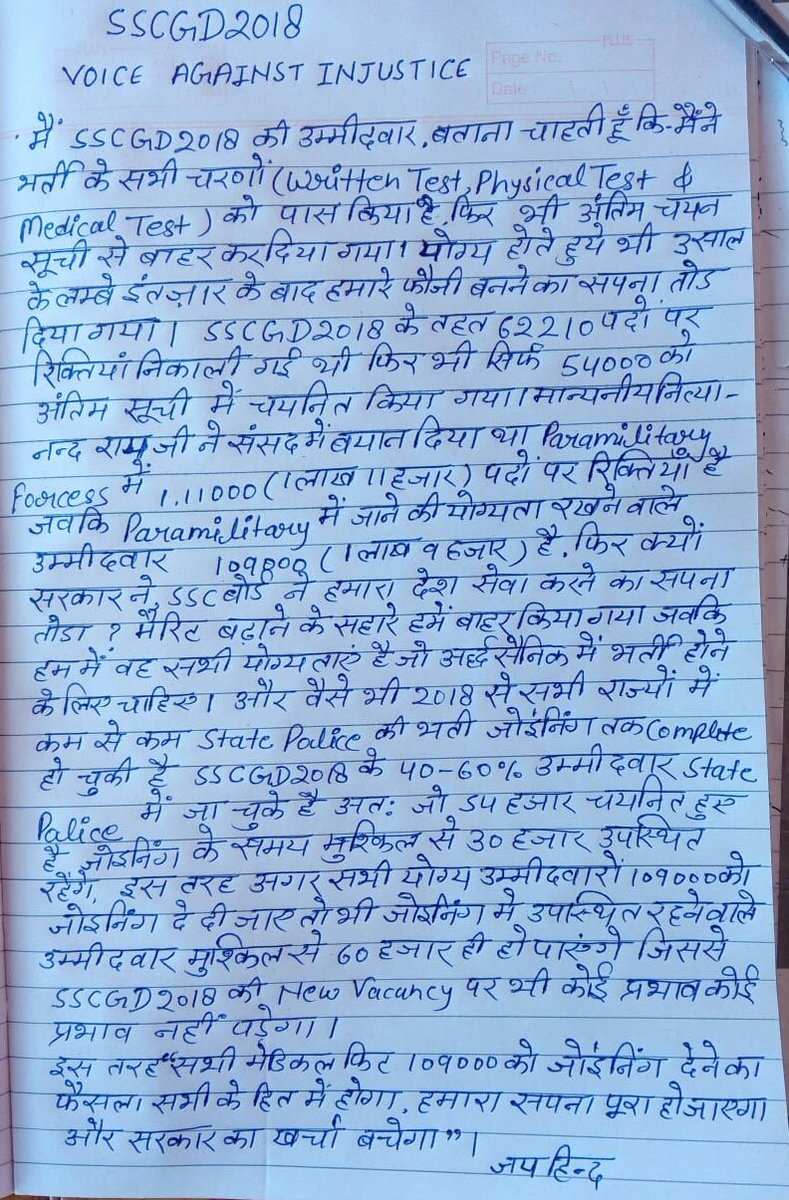 SSCGD2018
VOICE AGAINST INJUSTICE
PLUS
Page No.
Date : \ \
मैं SSCGD2018 की उम्मीदवार, बताना चाहती हूँ कि-मैंने
भर्ती के सभी चरणों (Written Test, Physical Test &
Medical Test) को पास किया है, फिर भी अंतिम चयन
सूची से बाहर कर दिया गया। योग्य होते हुये भी 3 साल
के लम्बे इंतज़ार के बाद हमारे फौजी बनने का सपना तोड
दिया गया। SSCGD2018 के तहत 62210 पदों पर
रिक्तियां निकाली गई थी फिर भी सिर्फ 54000 को
अंतिम सूची में चयनित किया गया। मान्यनीय नित्या-
नन्द राय जी ने संसद में बयान दिया था Paramilitary
Foorcess में 1.11000 (1 लाख 11 हजार) पदों पर रिक्तियाँ है
जबकि Paramilitary में जाने की योग्यता रखने वाले
उम्मीदवार 109000 (1 लाख 9 हजार) है, फिर क्यों
सरकार ने, SSC बोर्ड ने हमारा देश सेवा करने का सपना
तोडा ? मैरिट बढ़ाने के सहारे हमें बाहर किया गया जबकि
हम में वह सभी योग्यताएं है जो अर्द्धसैनिक में भर्ती होने
के लिए चाहिए। और वैसे भी 2018 से सभी राज्यों में
कम से कम State Police की भर्ती जोइंनिंग तक Complete
हो चुकी है SSCGD2018 के 40-60% उम्मीदवार State
Palice में जा चुके है अतः जो 54 हजार चयनित हुए
है, जोइनिंग के समय मुश्किल से 30 हजार उपस्थित
रहेंगे, इस तरह अगर सभी योग्य उम्मीदवारों 109000 को
जोइनिंग दे दी जाए तो भी जोइनिंग मे उपस्थित रहने वाले
उम्मीदवार मुश्किल से 60 हजार ही हो पाएंगे जिससे
SSCGD2018 की New Vacancy पर भी कोई प्रभाव कोई
प्रभाव नहीं पड़ेगा।
इस तरह "सभी मेडिकल फिट 109000 को जोइंनिंग देने का
फैसला सभी के हित में होगा, हमारा सपना पूरा हो जाएगा
और सरकार का खर्चा बचेगा"।
जय हिन्द